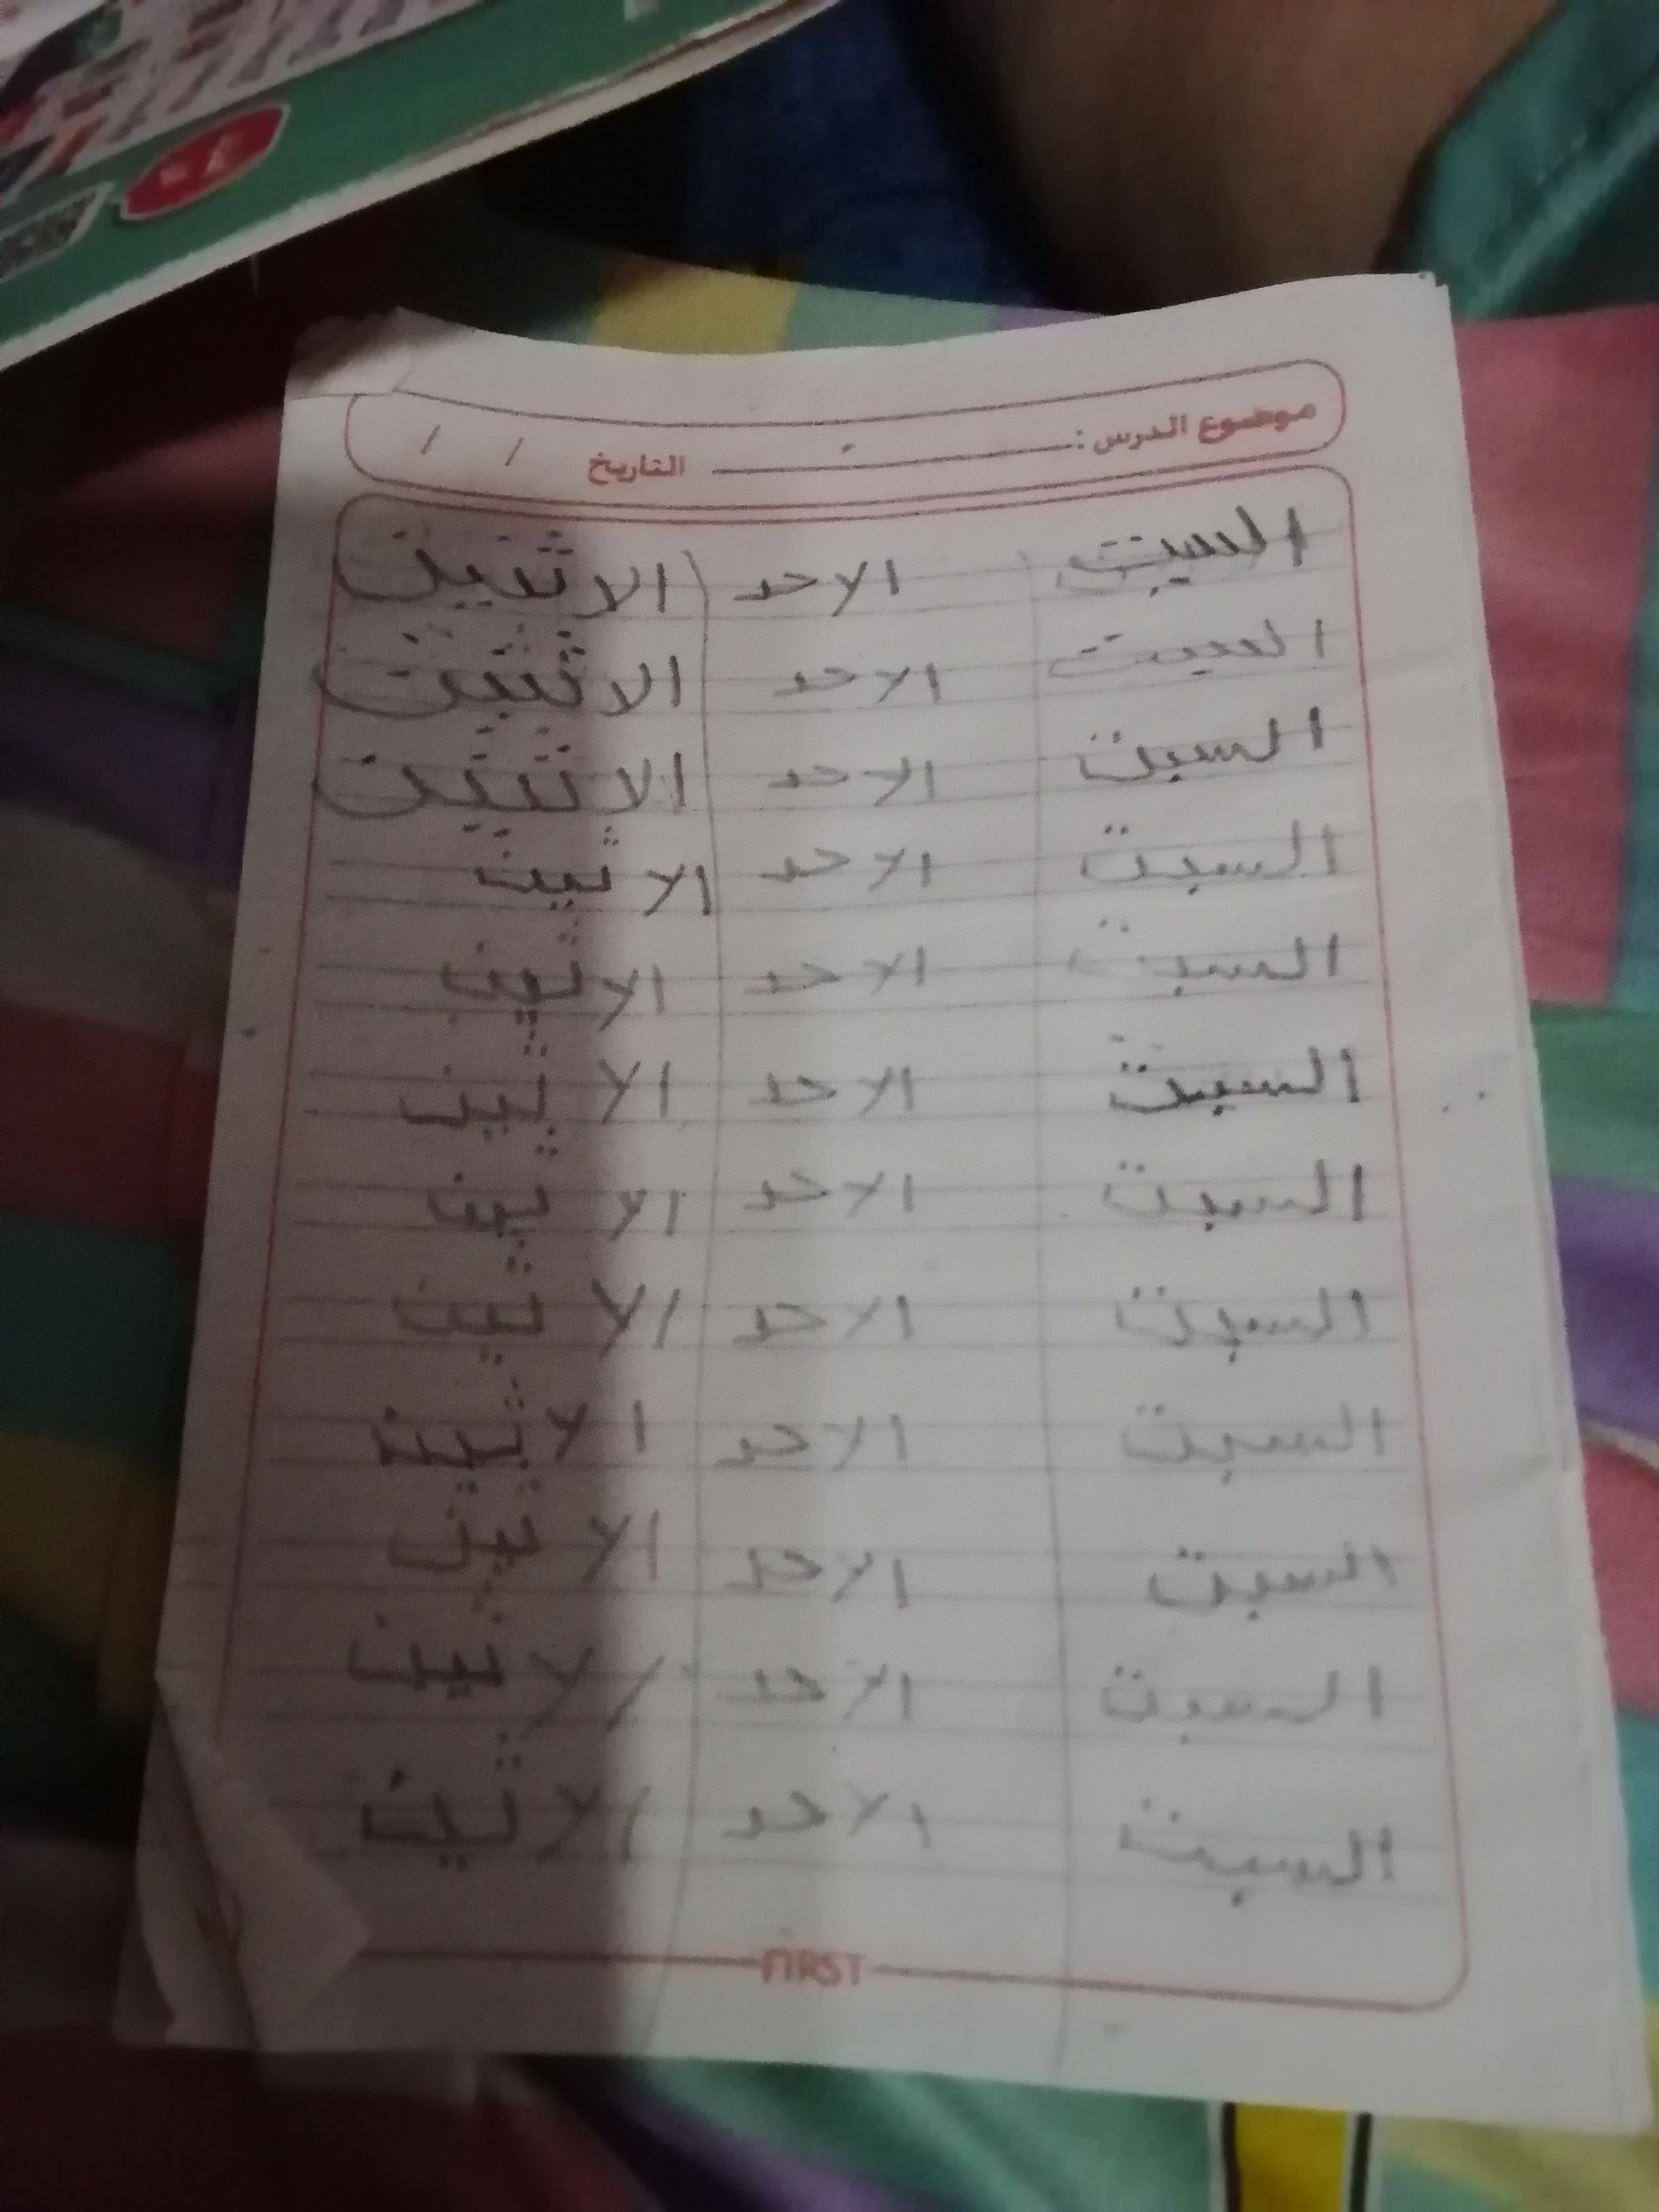 موضوع الدرس : التاريخ / /
السبت الاحد الاثنين
السبت الاحد الاثنين
السبت الاحد الاثنين
السبت الاحد الا ثين
السبت الاحد الاثين
السبت الاحد الا ثين
السبت الاحد الا ثين
السبت الاحد الا ثين
السبت الاحد الاثين
السبت الاحد الا ثين
السبت الاحد الا ثين
السبت الاحد الا ثين
FIRST